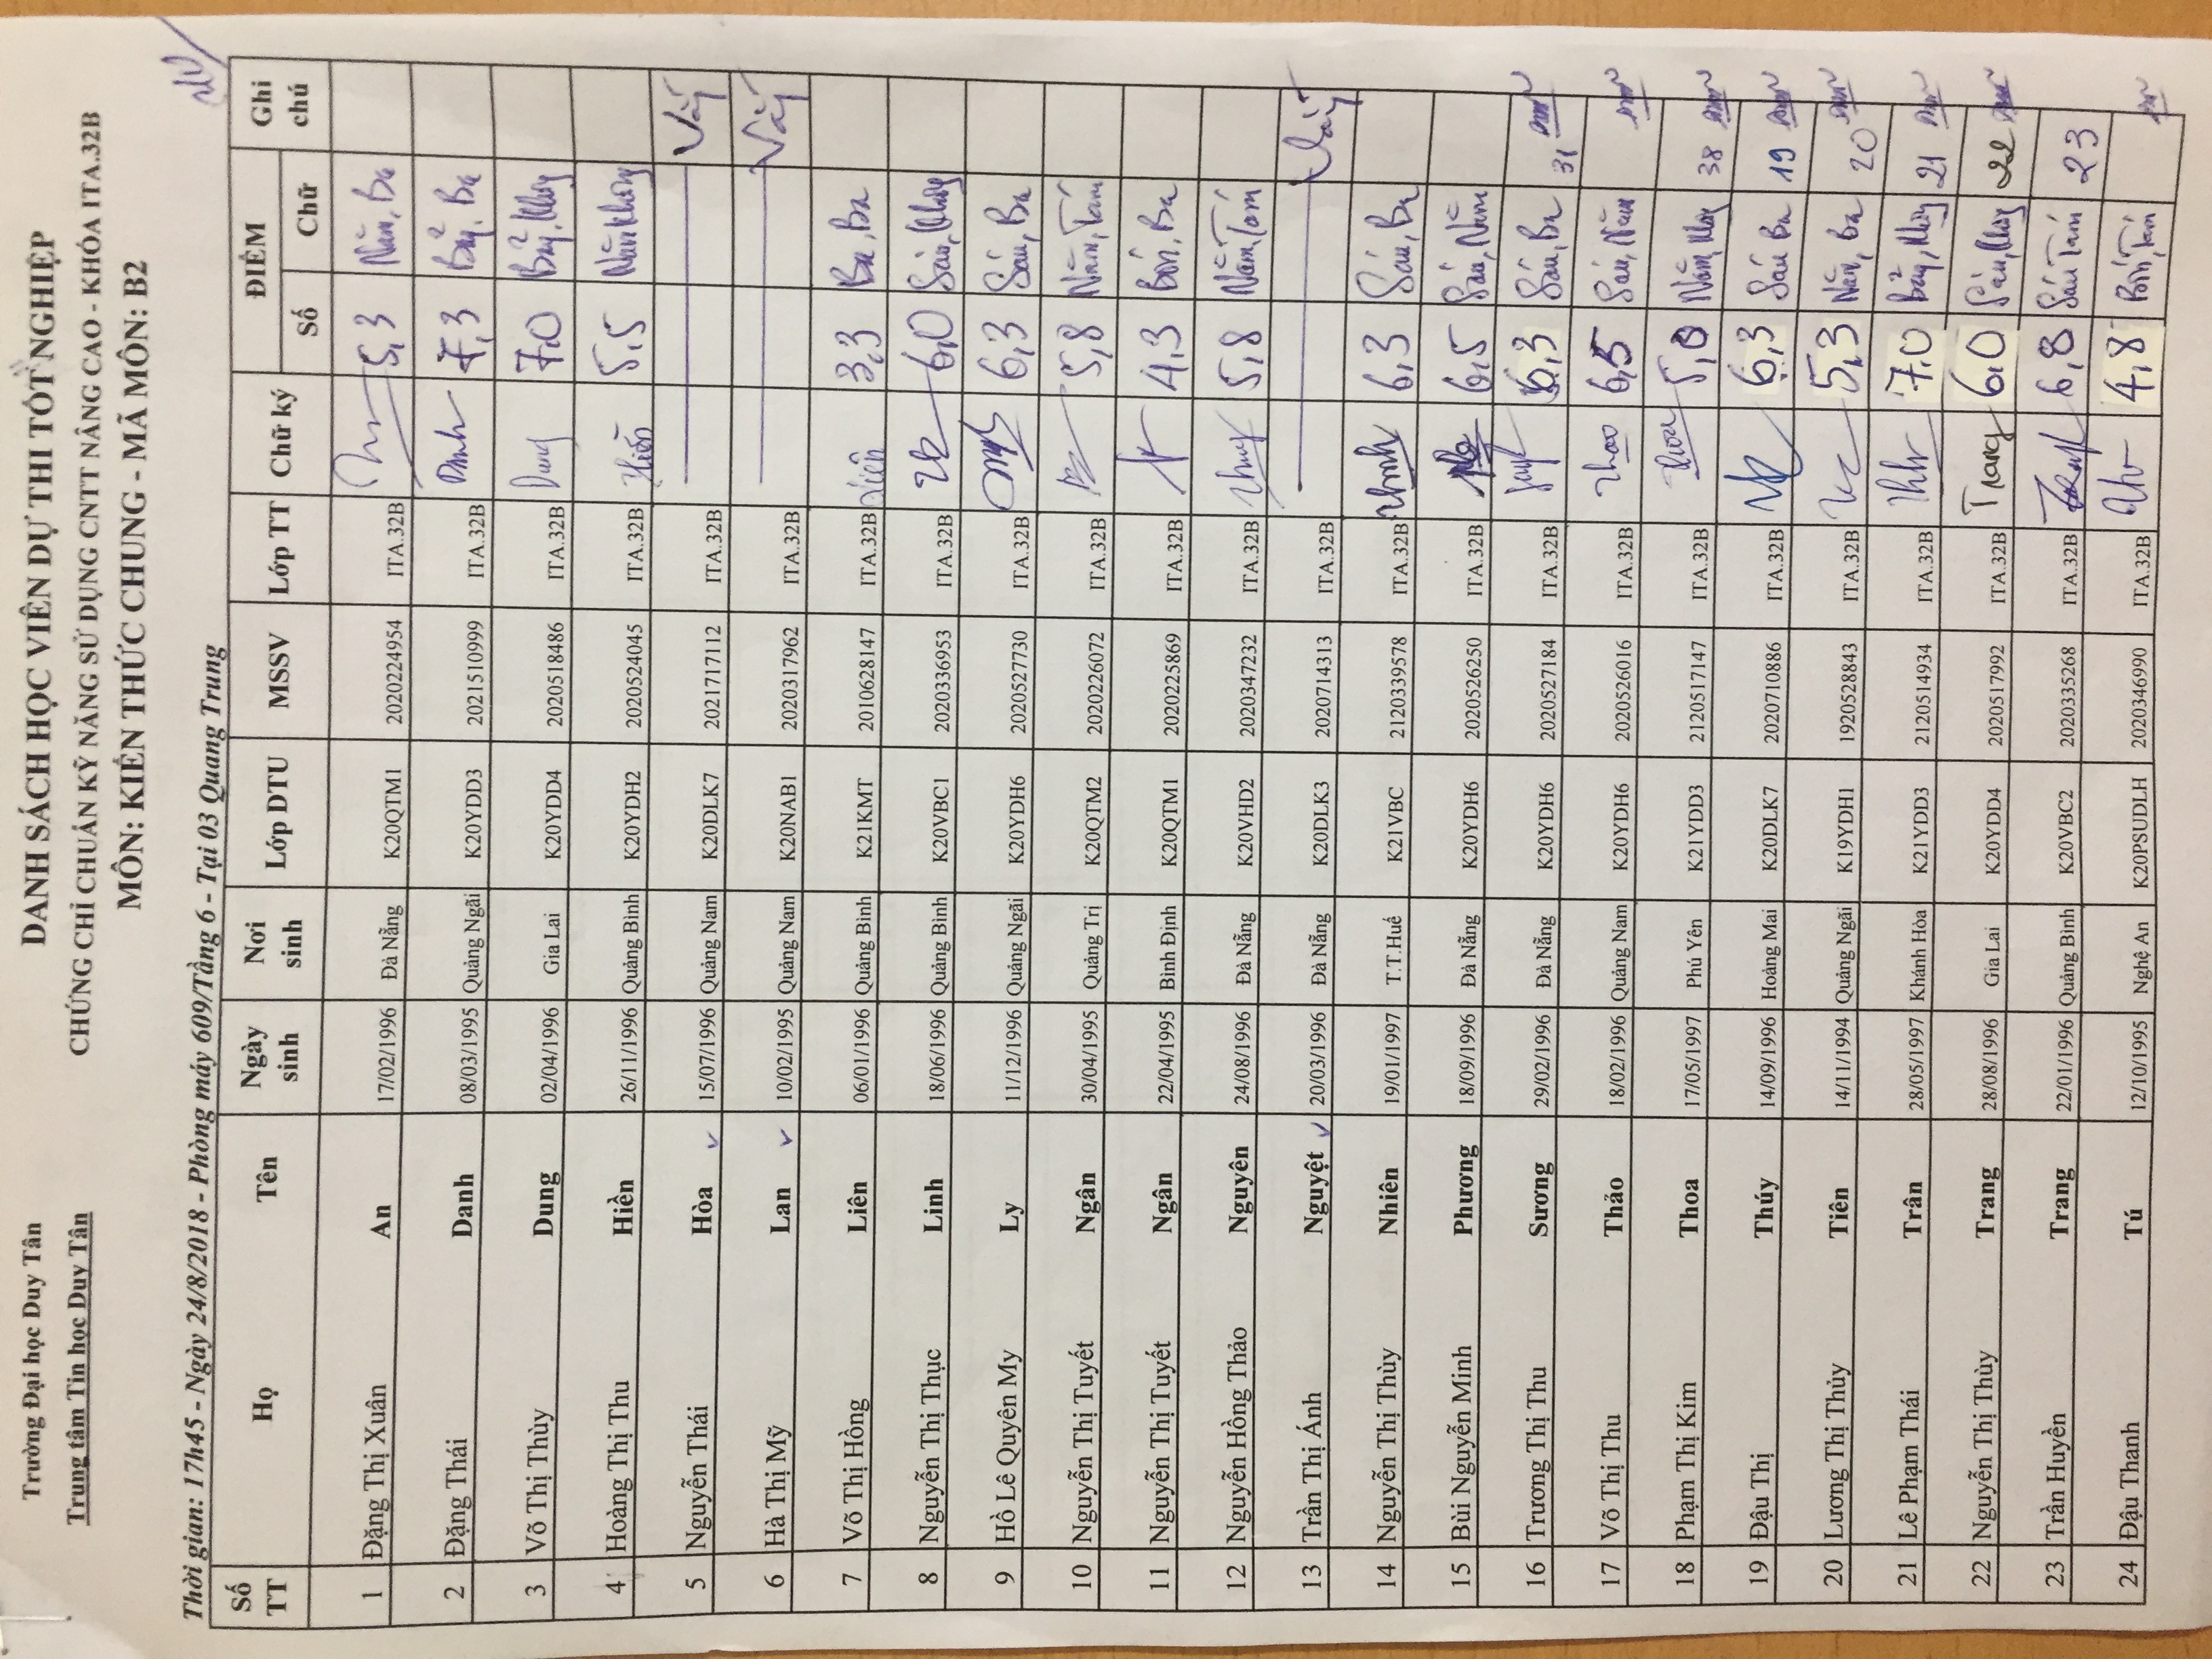 Trường Đại học Duy Tân
Trung tâm Tin học Duy Tân
DANH SÁCH HỌC VIÊN DỰ THI TỐT NGHIỆP
CHỨNG CHỈ CHUẨN KỸ NĂNG SỬ DỤNG CNTT NÂNG CAO - KHÓA ITA.32B
MÔN: KIẾN THỨC CHUNG - MÃ MÔN: B2
Thời gian: 17h45 - Ngày 24/8/2018 - Phòng máy 609/Tầng 6 - Tại 03 Quang Trung
Số TT Họ Tên Ngày sinh Nơi sinh Lớp DTU MSSV Lớp TT Chữ ký ĐIỂM Số Chữ Ghi chú
1 Đặng Thị Xuân An 17/02/1996 Đà Nẵng K20QTM1 2020224954 ITA.32B 5,3 Năm, Ba
2 Đặng Thái Danh 08/03/1995 Quảng Ngãi K20YDD3 2021510999 ITA.32B Danh 7,3 Bảy, Ba
3 Võ Thị Thùy Dung 02/04/1996 Gia Lai K20YDD4 2020518486 ITA.32B Dung 7,0 Bảy, Không
4 Hoàng Thị Thu Hiền 26/11/1996 Quảng Bình K20YDH2 2020524045 ITA.32B Hiền 5,5 Năm Không
5 Nguyễn Thái Hòa 15/07/1996 Quảng Nam K20DLK7 2021717112 ITA.32B Vắng
6 Hà Thị Mỹ Lan 10/02/1995 Quảng Nam K20NAB1 2020317962 ITA.32B Vắng
7 Võ Thị Hồng Liên 06/01/1996 Quảng Bình K21KMT 2010628147 ITA.32B Liên 3,3 Ba, Ba
8 Nguyễn Thị Thục Linh 18/06/1996 Quảng Bình K20VBC1 2020336953 ITA.32B 6,0 Sáu, Không
9 Hồ Lê Quyên My Ly 11/12/1996 Quảng Ngãi K20YDH6 2020527730 ITA.32B 6,3 Sáu, Ba
10 Nguyễn Thị Tuyết Ngân 30/04/1995 Quảng Trị K20QTM2 2020226072 ITA.32B 5,8 Năm, Tám
11 Nguyễn Thị Tuyết Ngân 22/04/1995 Bình Định K20QTM1 2020225869 ITA.32B 4,3 Bốn, Ba
12 Nguyễn Hồng Thảo Nguyên 24/08/1996 Đà Nẵng K20VHD2 2020347232 ITA.32B 5,8 Năm, Tám
13 Trần Thị Ánh Nguyệt 20/03/1996 Đà Nẵng K20DLK3 2020714313 ITA.32B Vắng
14 Nguyễn Thị Thùy Nhiên 19/01/1997 T.T.Huế K21VBC 2120339578 ITA.32B 6,3 Sáu, Ba
15 Bùi Nguyễn Minh Phương 18/09/1996 Đà Nẵng K20YDH6 2020526250 ITA.32B 6,5 Sáu, Năm
16 Trương Thị Thu Sương 29/02/1996 Đà Nẵng K20YDH6 2020527184 ITA.32B 6,3 Sáu, Ba 31
17 Võ Thị Thu Thảo 18/02/1996 Quảng Nam K20YDH6 2020526016 ITA.32B Thao 6,5 Sáu, Năm
18 Phạm Thị Kim Thoa 17/05/1997 Phú Yên K21YDD3 2120517147 ITA.32B Thoa 5,0 Năm, Không 38
19 Đậu Thị Thúy 14/09/1996 Hoàng Mai K20DLK7 2020710886 ITA.32B 6,3 Sáu Ba 19
20 Lương Thị Thủy Tiên 14/11/1994 Quảng Ngãi K19YDH1 1920528843 ITA.32B 5,3 Năm, Ba 20
21 Lê Phạm Thái Trân 28/05/1997 Khánh Hòa K21YDD3 2120514934 ITA.32B 7,0 Bảy, Không 21
22 Nguyễn Thị Thùy Trang 28/08/1996 Gia Lai K20YDD4 2020517992 ITA.32B Trang 6,0 Sáu, Không 22
23 Trần Huyền Trang 22/01/1996 Quảng Bình K20VBC2 2020335268 ITA.32B 6,8 Sáu Tám 23
24 Đậu Thanh Tú 12/10/1995 Nghệ An K20PSUDLH 2020346990 ITA.32B 4,8 Bốn, Tám